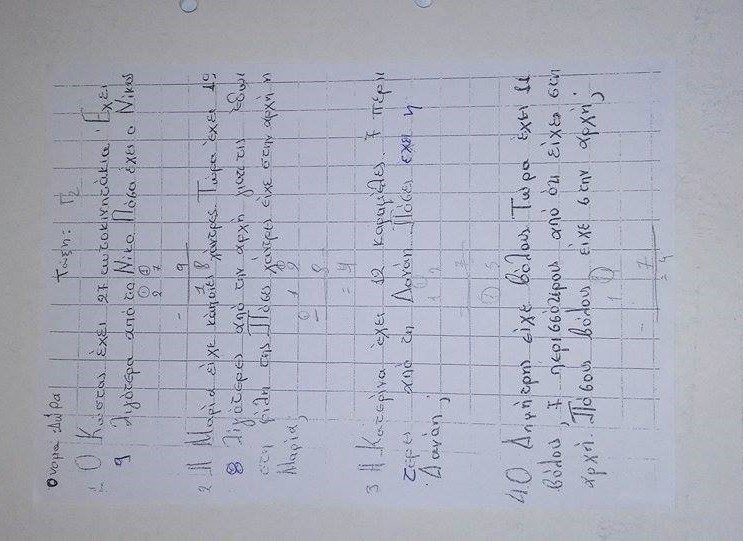 Όνομα: Δώρα Τάξη: Γ2
1. Ο Κώστας έχει 27 αυτοκινητάκια. Έχει
9 λιγότερα από το Νίκο. Πόσα έχει ο Νίκος
2 7
- 9
1 8
2 Η Μαρία είχε κάποιες χάντρες. Τώρα έχει 12
8 λιγότερες από την αρχή γιατί τις έδωσε
στη φίλη της. Πόσες χάντρες είχε στην αρχή η
Μαρία;
1 2
- 8
= 4
3 Η Κατερίνα έχει 12 καραμέλες. 7 περισ
τερες από τη Δανάη. Πόσες έχει η
Δανάη;
1 2
- 7
5
4 Ο Δημήτρης είχε βόλους. Τώρα έχει 11
βόλους, 7 περισσότερους από ότι είχε στην
αρχή. Πόσους βόλους είχε στην αρχή;
1 1
- 7
= 4